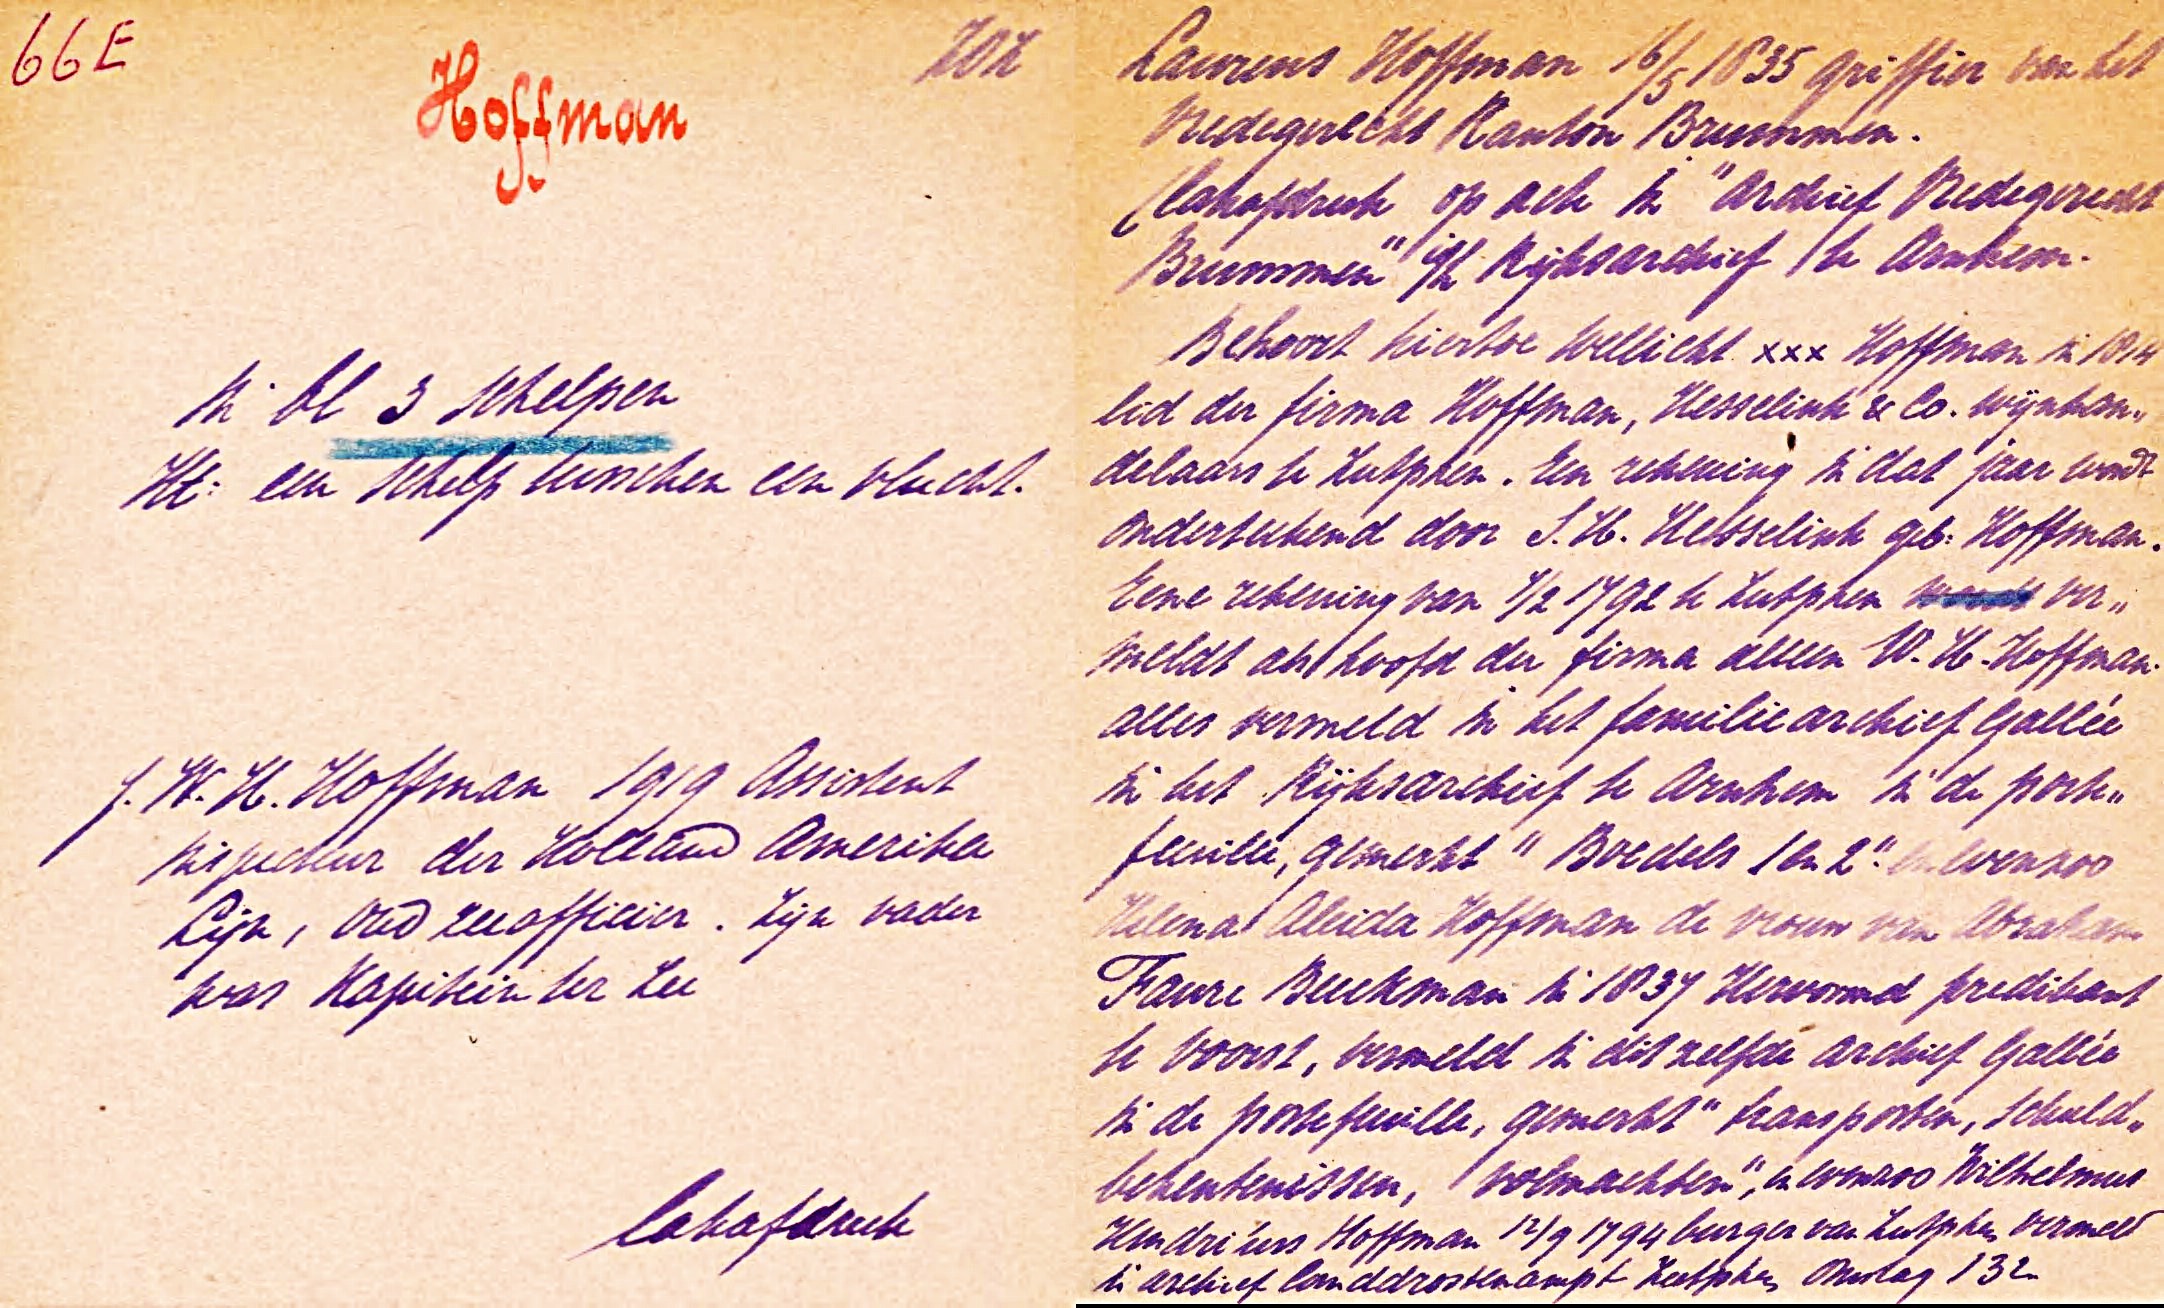 66E
Hoffman
ZOZ
in bl 3 schelpen
Ht: een schelp tusschen een vlucht.
J. W. H. Hoffman 1919 Assistent
inspecteur der Holland Amerika
Lijn, oud zeeofficier. Zijn vader
was Kapitein ter Zee
Lakafdruk
Laurens Hoffman 16/5 1835 griffier van het
Vredegerecht Kanton Brummen.
(lakafdruk op acte in "archief Vredegerecht
Brummen" i/h Rijksarchief te Arnhem.
Behoort hiertoe wellicht xxx Hoffman in 1814
lid der firma Hoffman, Hesselink & Co. wijnhan„
delaars te Zutphen. Een rekening in dat jaar wordt
ondertekend door S. H. Hesselink geb: Hoffman.
Eene rekening van 1/2 1792 te Zutphen ver„
meldt als hoofd der firma alleen W. H. Hoffman.
alles vermeld in het familiearchief Gallée
in het Rijksarchief te Arnhem in de porte„
feuille, gemerkt "Boedels 1 en 2". en evenzoo
Helena Aleida Hoffman de vrouw van Abraham
Faure Beeckman in 1837 Hervormd predikant
te Voorst, vermeld in ditzelfde archief Gallée
in de portefeuille, gemerkt "transporten, schuld„
bekentenissen, volmachten", en evenzoo Wilhelmus
Hendricus Hoffman 12/9 1794 burger van Zutphen vermeld
in archief Landdrostenampt Zutphen Omslag 132